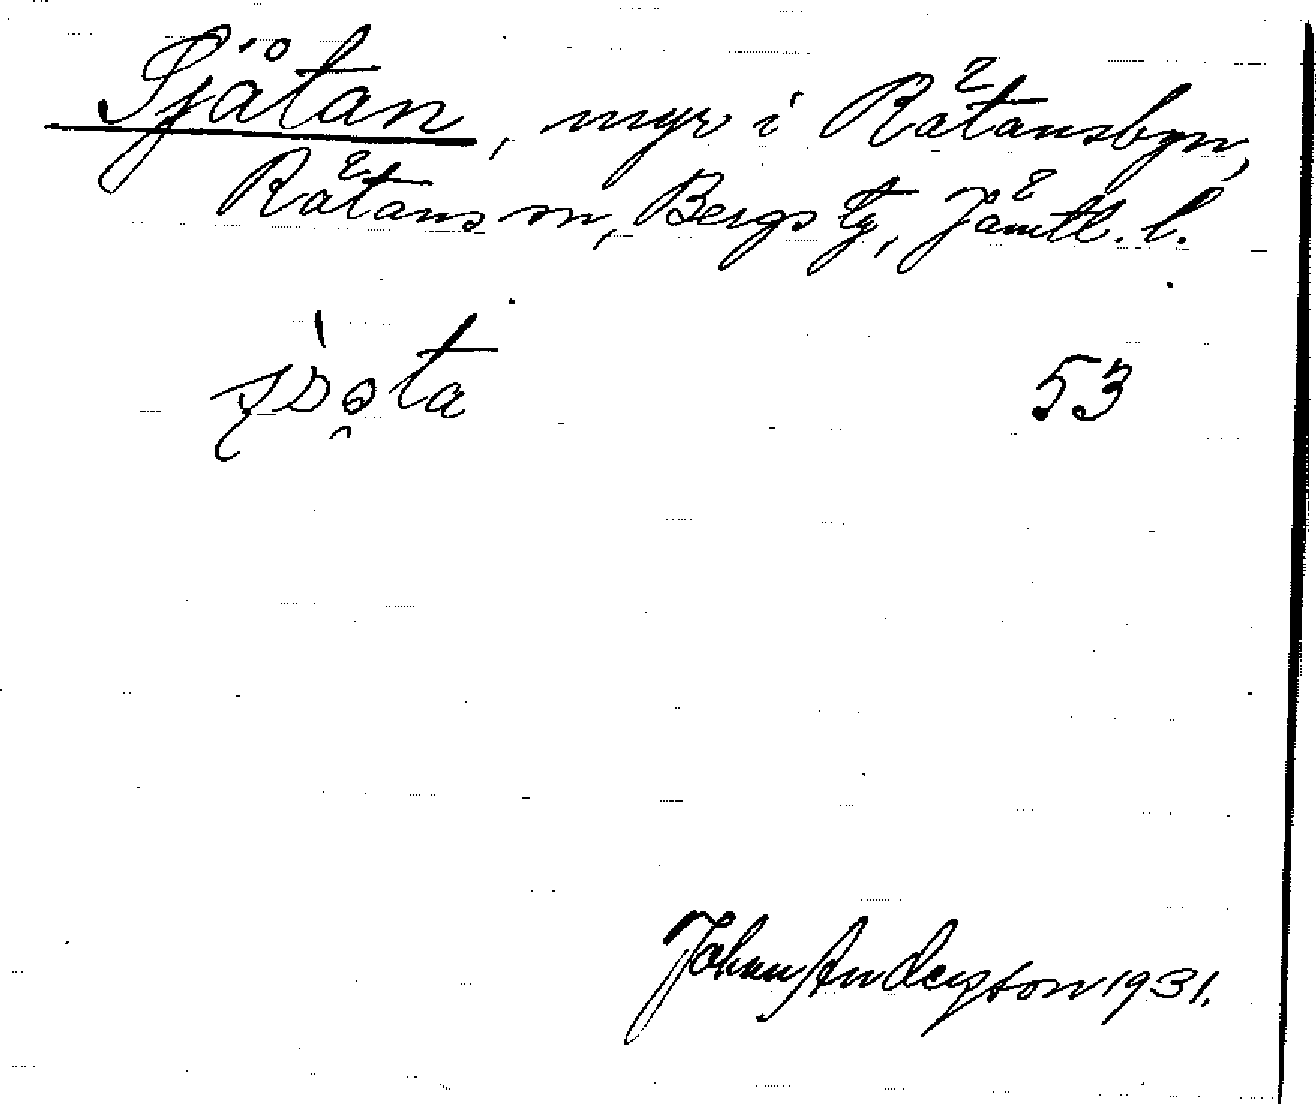 Sjätan, myr i Rätansbyn,
Rätans sn, Bergs tg, Jämtl. l.
53
Johan Andersson 1931.